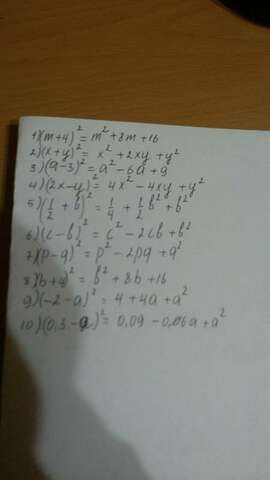 1)(m+4)² = m² + 8m + 16
2)(x+y)² = x² + 2xy + y²
3)(a-3)² = a² - 6a + 9
4)(2x-y)² = 4x² - 4xy + y²
5)(1/2 + b)² = 1/4 + 1/2 b² + b²
6)(c-b)² = c² - 2cb + b²
7)(p-q)² = p² - 2pq + q²
8)b+4)² = b² + 8b + 16
9)(-2-a)² = 4 + 4a + a²
10)(0,3-a)² = 0,09 - 0,06a + a²